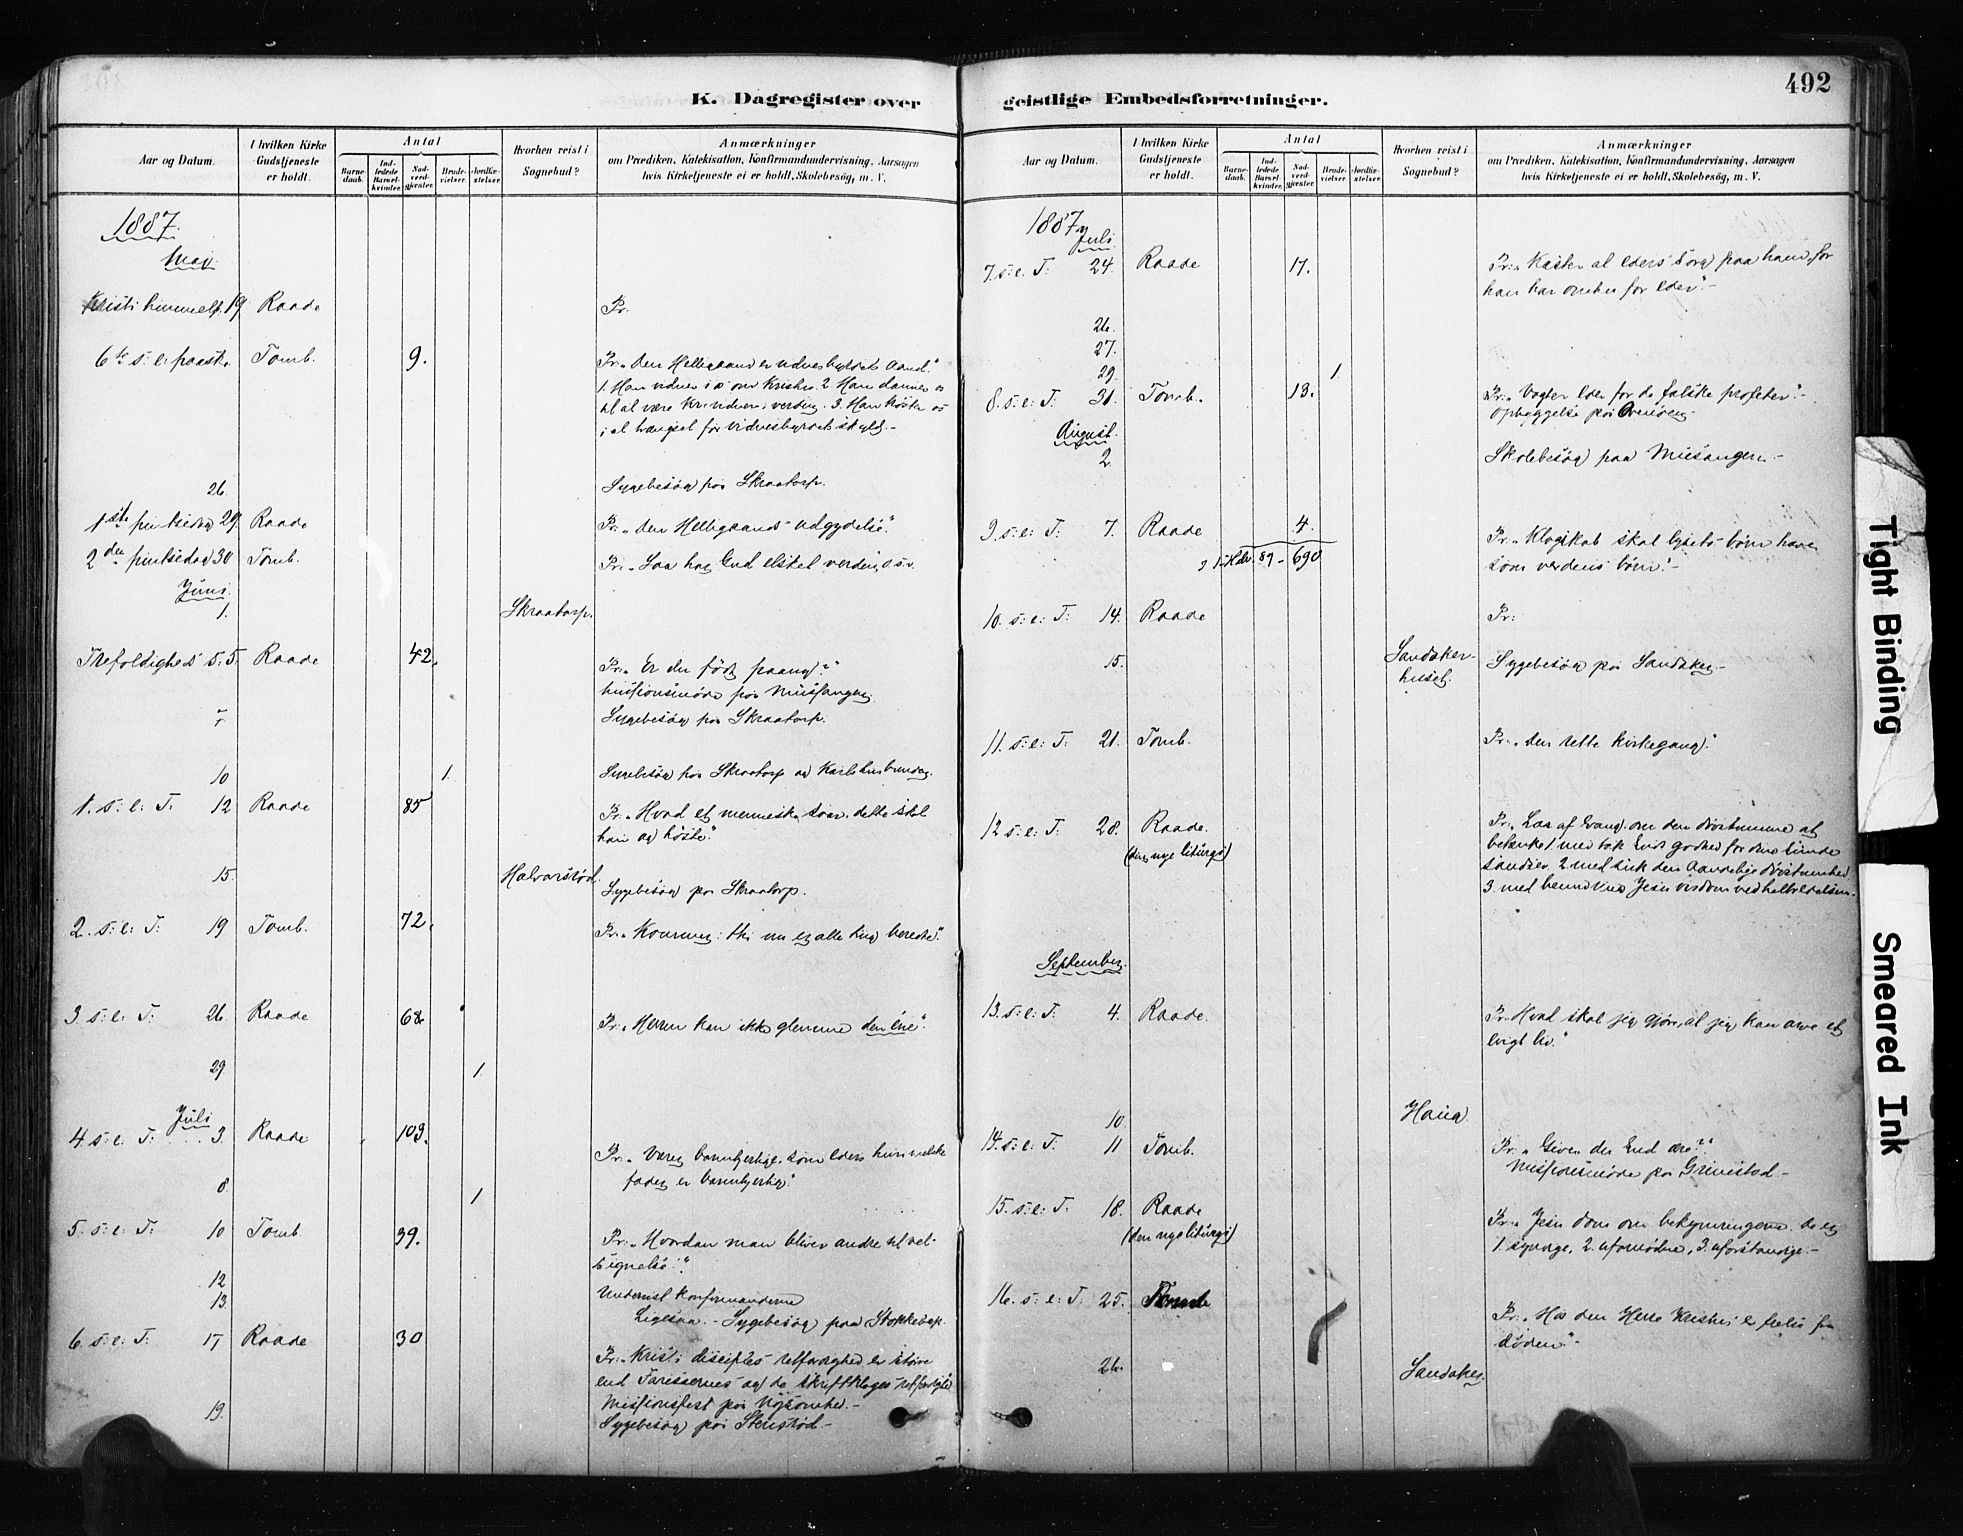 K. Dagregister over
Aar og Datum.
I hvilken Kirke Gudstjeneste er holdt.
Antal
Barne-daab.
Ind-ledede Barsel-kvinder.
Nad-verd-gjester.
Brude-vielser.
Jordfæ-stelser.
Hvorhen reist i Sognebud?
Anmærkninger
om Prædiken, Katekisation, Konfirmandundervisning, Aarsagen
hvis Kirketjeneste ei er holdt, Skolebesøg, m. V.
1887.
Mai
Kristi himmelf. 19 Raade Pr:
6te s: e: paaske. Tomb. 9. Pr: "Den Helligaand er vidnesbyrdets Aand."
1. Han vidner i os om Kristus. 2. Han danner os
til at være Kr. vidner i verden. 3. Han trøster os
i al trængsel for vidnesbyrdets skyld.-
26. Sygebesøg paa Skraatorp.
1ste pintsedag 29. Raade Pr: "Den Helligaands udgydelse."
2den pintsedag 30 Tomb. Pr: "Saa har Gud elsket verden, o s v.
Juni
1. Skraatorp.
Trefoldigheds s. 5. Raade 42. Pr: "Er du født paany?"
Missionsmøde paa Missangen
Sygebesøg paa Skraatorp.
10 1. Sygebesøg paa Skraatorp og Karlshus
1. s: e: T. 12 Raade 85 Pr: "Hvad et menneske saar, dette skal
han og høste."
15. Halvorsrød. Sygebesøg paa Skraatorp.
2. s: e: T. 19 Tomb. 72. Pr: "Kommer: thi nu er alle ting beredte."
3. s: e: T. 26. Raade 68 Pr: "Herren kan ikke glemme den ene".
29 1
Juli
4. s: e: T. 3. Raade 103. Pr: "Værer barmhjertige, som eders himmelske
fader er barmhjertig."
8. 1
5. s: e: T. 10 Tomb 39. Pr: "Hvordan man bliver andre til vel-
signelse."
12 Undervist konfirmanderne
13. Ligesaa.- Sygebesøg paa
6. s: e: T. 17 Raade 30 Pr: "Kristi disciples retfærdighed er større
end Farisæernes og de skriftkloges retfærdighed
Missionsfest paa
19. Sygebesøg paa Stensrød-
geistlige Embedsforretninger.
492
Aar og Datum.
I hvilken Kirke Gudstjeneste er holdt.
Antal
Barne-daab.
Ind-ledede Barsel-kvinder.
Nad-verd-gjester.
Brude-vielser.
Jordfæ-stelser.
Hvorhen reist i Sognebud?
Anmærkninger
om Prædiken, Katekisation, Konfirmandundervisning, Aarsagen
hvis Kirketjeneste ei er holdt, Skolebesøg, m. V.
1887
Juli
7. s: e: T. 24. Raade 17. Pr: "Kaster al eders Sorg paa ham, for
han har omhu for eder."-
26.
27.
29. 1
8. s: e: T. 31. Tomb. 13. Pr: "Vogter eder for de falske profeter."-
Opbyggelse paa
August.
2. Skolebesøg paa Missangen.-
9. s: e: T. 7. Raade 4. Pr: "Klogskab skal lysets børn have
som verdens børn."-
89 - 690
10. s: e: T. 14. Raade Pr:
15. Sandaker-
huset. Sygebesøg paa Sandaker.-
11. s: e: T. 21. Tomb. Pr: "Den rette kirkegang."
12 s: e: T. 28. Raade.
(den nye liturgi) Pr: "Lær af Evang. om den døvstumme at
betænke 1. med tak Guds godhed for dine sunde
sandser. 2. med suk den Aandelige døvstumhed
3. med beundring Jesu visdom ved helbredelsen.
September.
13. s: e: T. 4. Raade. Pr: Hvad skal jeg gjøre, at jeg kan arve et
evigt liv."
10. Haug.
14. s: e: T. 11 Tomb. Pr: "Giver du Gud ære?"
Missionsmøde paa Grimestad-
15. s: e: T. 18. Raade
(den nye liturgi) Pr: Jesu dom om bekymringerne: de er
1. syndige, 2. ufornødne, 3. uforstandige.-
16. s: e: T. 25. Pr: "Hos den Herre Kristus er frelse fra
døden."-
26. Sandaker.
Tight Binding
Smeared Ink